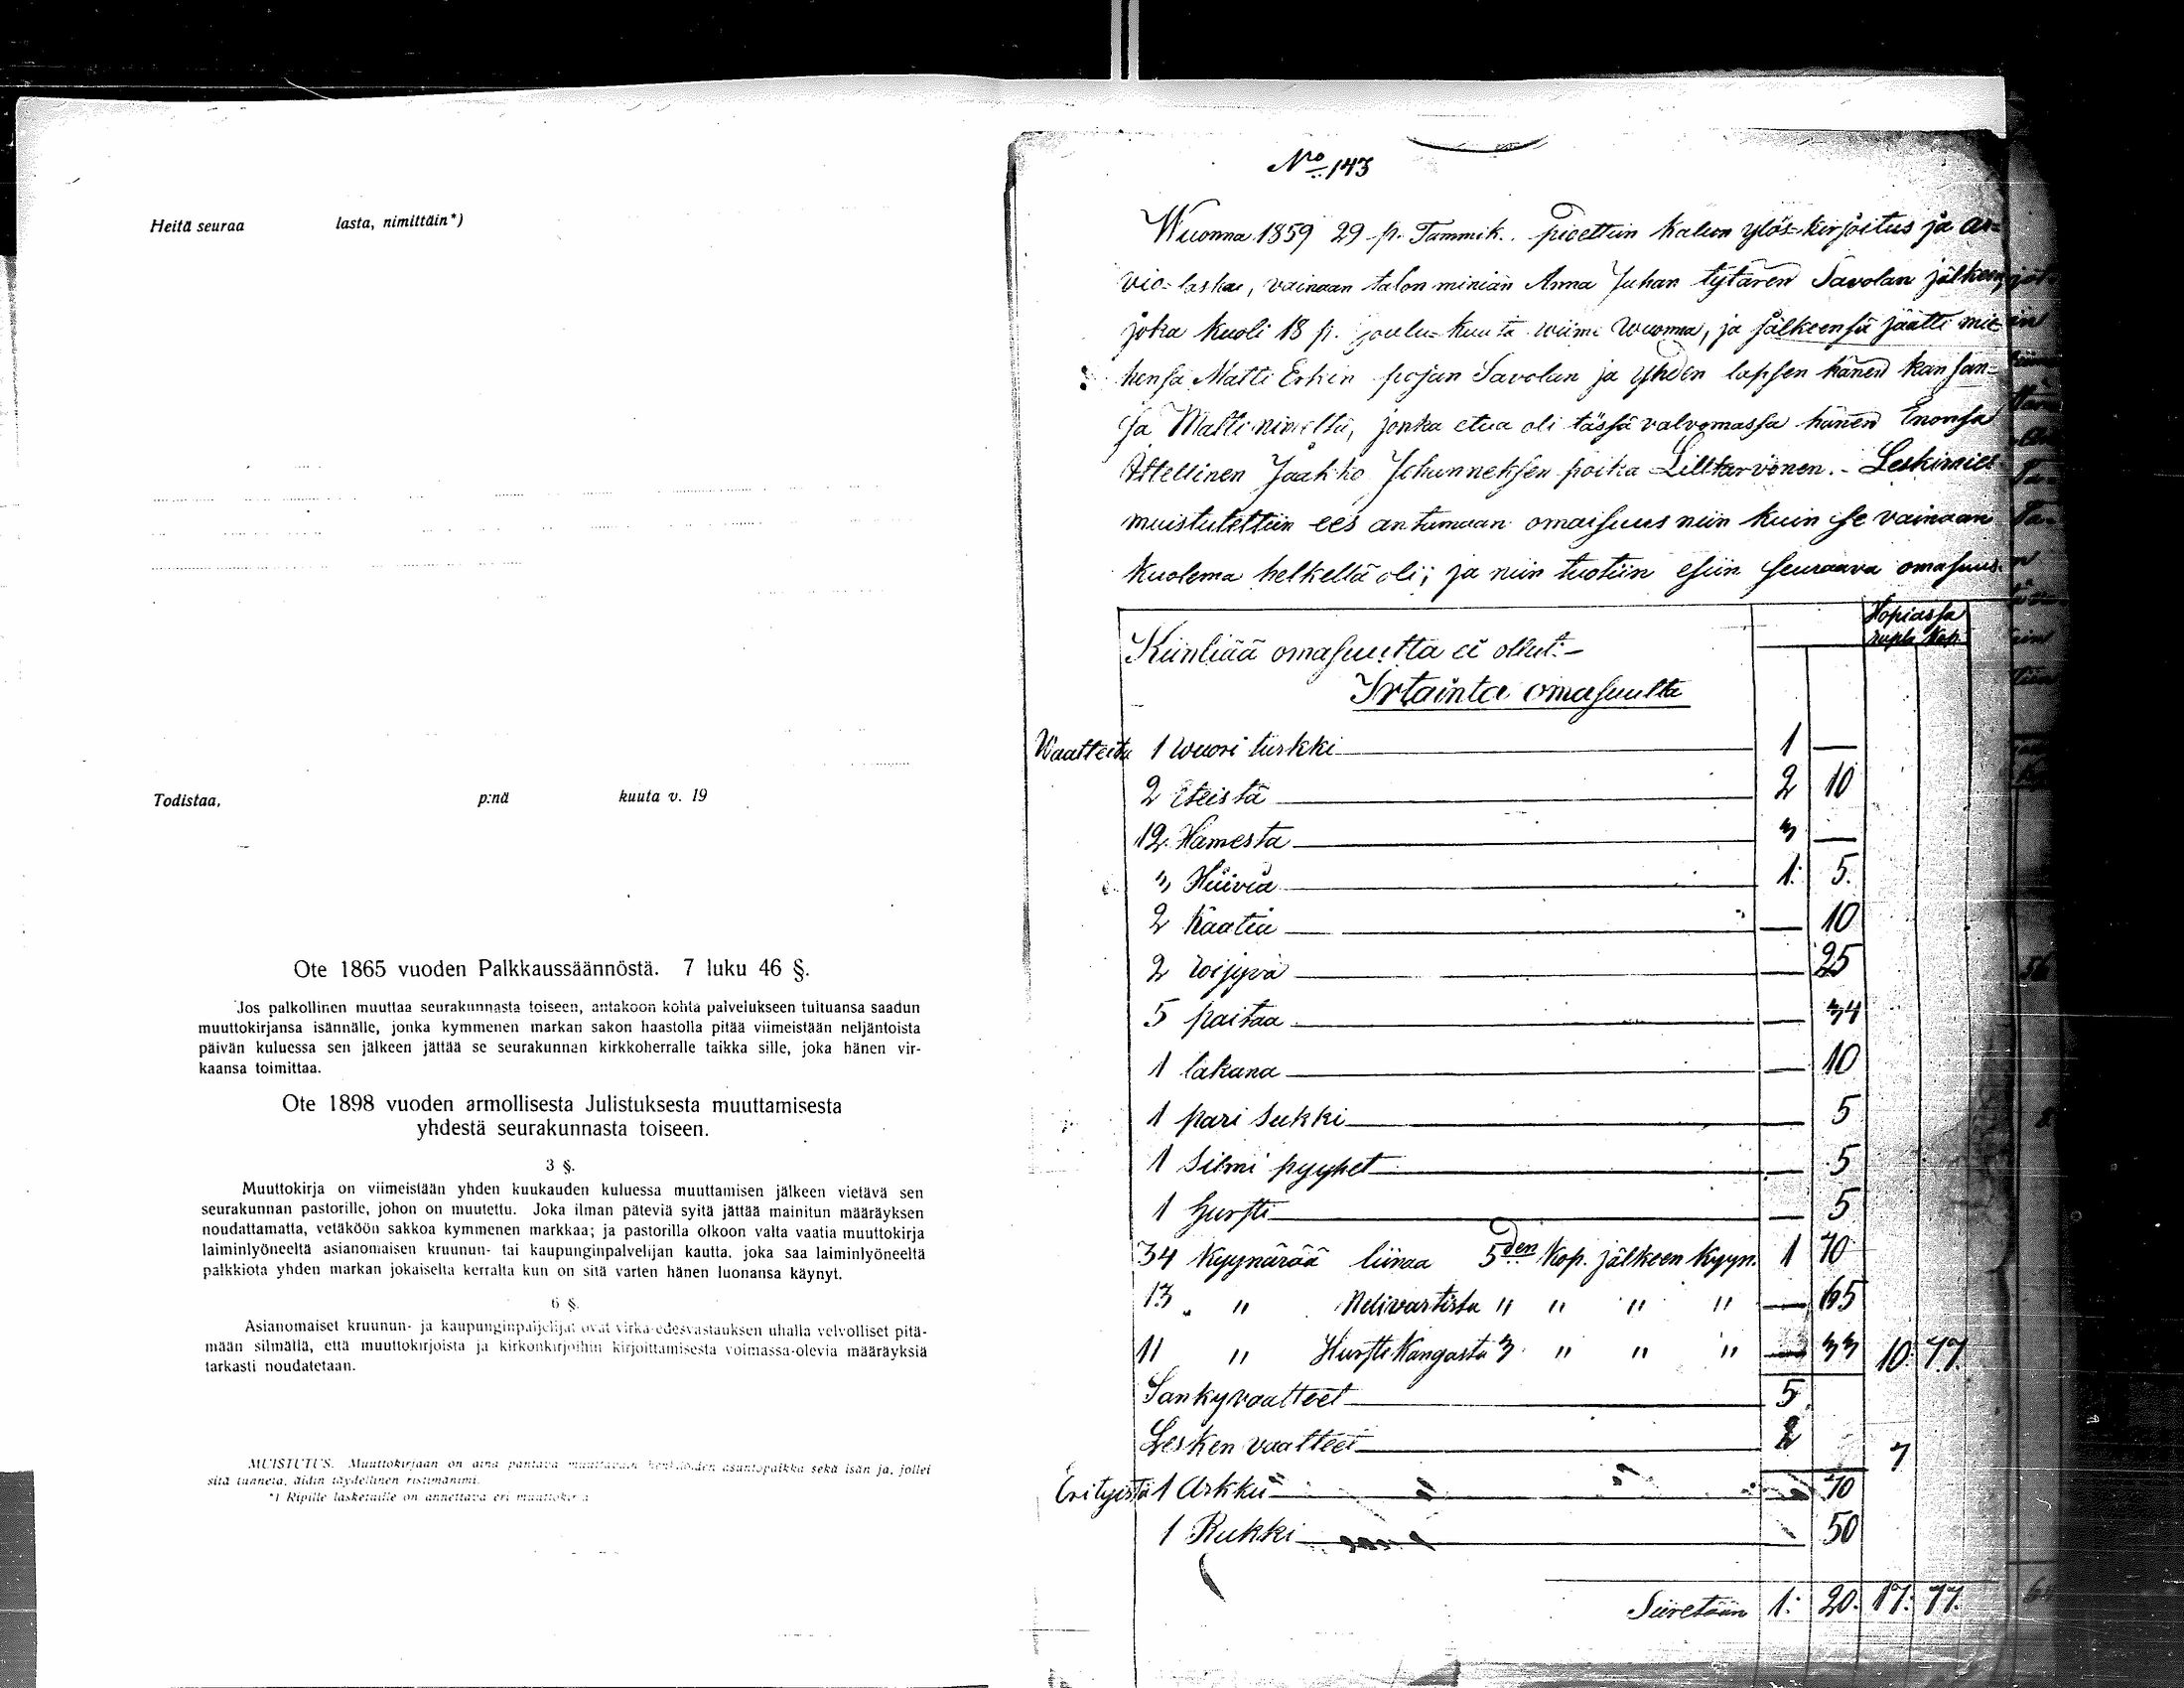 Heitä seuraa lasta, nimittäin*)
Todistaa, p:nä kuuta v. 19
Ote 1865 vuoden Palkkaussäännöstä. 7 luku 46 §.
Jos palkollinen muuttaa seurakunnasta toiseen, antakoon kohta palvelukseen tultuansa saadun
muuttokirjansa isännälle, jonka kymmenen markan sakon haastolla pitää viimeistään neljäntoista
päivän kuluessa sen jälkeen jättää se seurakunnan kirkkoherralle taikka sille, joka hänen vir-
kaansa toimittaa.
Ote 1898 vuoden armollisesta Julistuksesta muuttamisesta
yhdestä seurakunnasta toiseen.
3 §.
Muuttokirja on viimeistään yhden kuukauden kuluessa muuttamisen jälkeen vietävä sen
seurakunnan pastorille, johon on muutettu. Joka ilman päteviä syitä jättää mainitun määräyksen
noudattamatta, vetäköön sakkoa kymmenen markkaa; ja pastorilla olkoon valta vaatia muuttokirja
laiminlyöneeltä asianomaisen kruunun- tai kaupunginpalvelijan kautta, joka saa laiminlyöneeltä
palkkiota yhden markan jokaiselta kerralta kun on sitä varten hänen luonansa käynyt.
6 §.
Asianomaiset kruunun- ja kaupunginpalvelijat ovat virka-edesvastauksen uhalla velvolliset pitä-
mään silmällä, että muuttokirjoista ja kirkonkirjoihin kirjoittamisesta voimassa-olevia määräyksiä
tarkasti noudatetaan.
MUISTUTUS. Muuttokirjaan on aina pantava muuttavain henkilöiden asuntopaikka sekä isän ja, jollei
sitä tunneta, äidin täydellinen ristimänimi.
*) Ripille lasketuille on annettava eri muuttokirja
No 143
Wuonna 1859 29 p. Tammik. pidettiin kalun ylös-kirjoitus ja ar=
vio-lasku, vainaan talon miniän Anna Juhan tytären Savolan jälkeen,
joka kuoli 18 p. joulu-kuuta wiime wuonna, ja jälkeensä jäätti mie
hensä Matti Erkin pojan Savolan ja yhden lapsen hänen kansan=
sa Matti nimeltä, jonka etua oli tässä valvomassa hänen Enonsa
Ittellinen Jaakko Johanneksen poika Lilltarvonen. - Leskimies
muistutettiin ees antamaan omaisuus niin kuin se vainaan
kuolema hetkellä oli; ja niin tuotiin esiin seuraava omasuus.
Hopiassa
rupla Kop.
Kiinliää omasuutta ei ollut. -
Irtainta omasuutta
Waatteita 1 wuori turkki 1 —
2 Eteistä 2 10
12 Hamesta 3 —
3 Huivia 1: 5.
2 Kaatia — 10
2 — 25
5 paitaa — 34
1 lakana — 10
1 pari Sukki — 5
1 Silmi pyyhet — 5
1 hursti — 5
34 Kyynärää liinaa 5den Kop. jälkeen kyyn. 1 70
13 " " Nelivartista " " " " — 65
11 " Hursti Kangasta 3 " " " — 33 10: 77.
Sankyvaatteet 5
Lesken vaatteet 2 7
Erityistä 1 Arkku — 70
1 Rukki 50
Siiretään 1: 20. 17: 77.